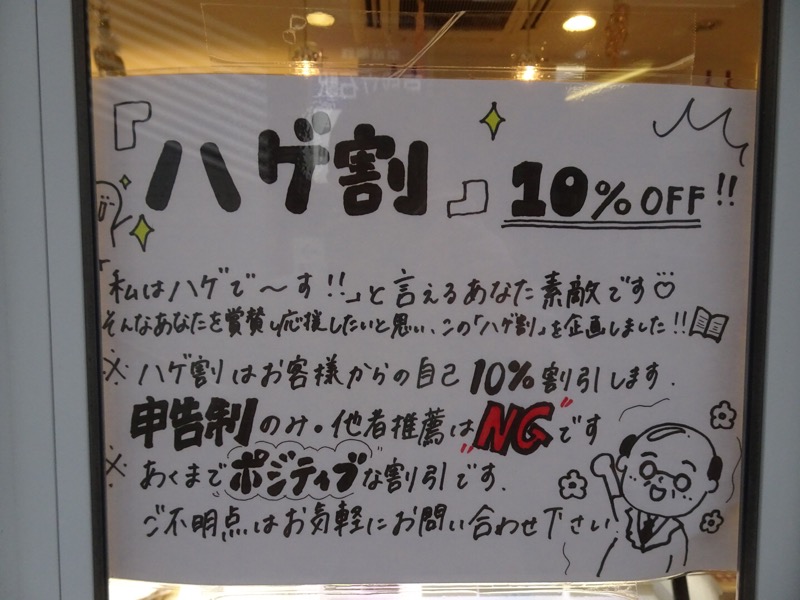 『ハゲ割』 10%OFF!!
私はハゲで〜す!!」と言えるあなた素敵です♡
そんなあなたを賞賛し応援したいと思い、この「ハゲ割」を企画しました!!
※ハゲ割はお客様からの自己10%割引します.
申告制のみ。他者推薦は"NG"です
※あくまでポジティブな割引です.
ご不明点はお気軽にお問い合わせ下さい